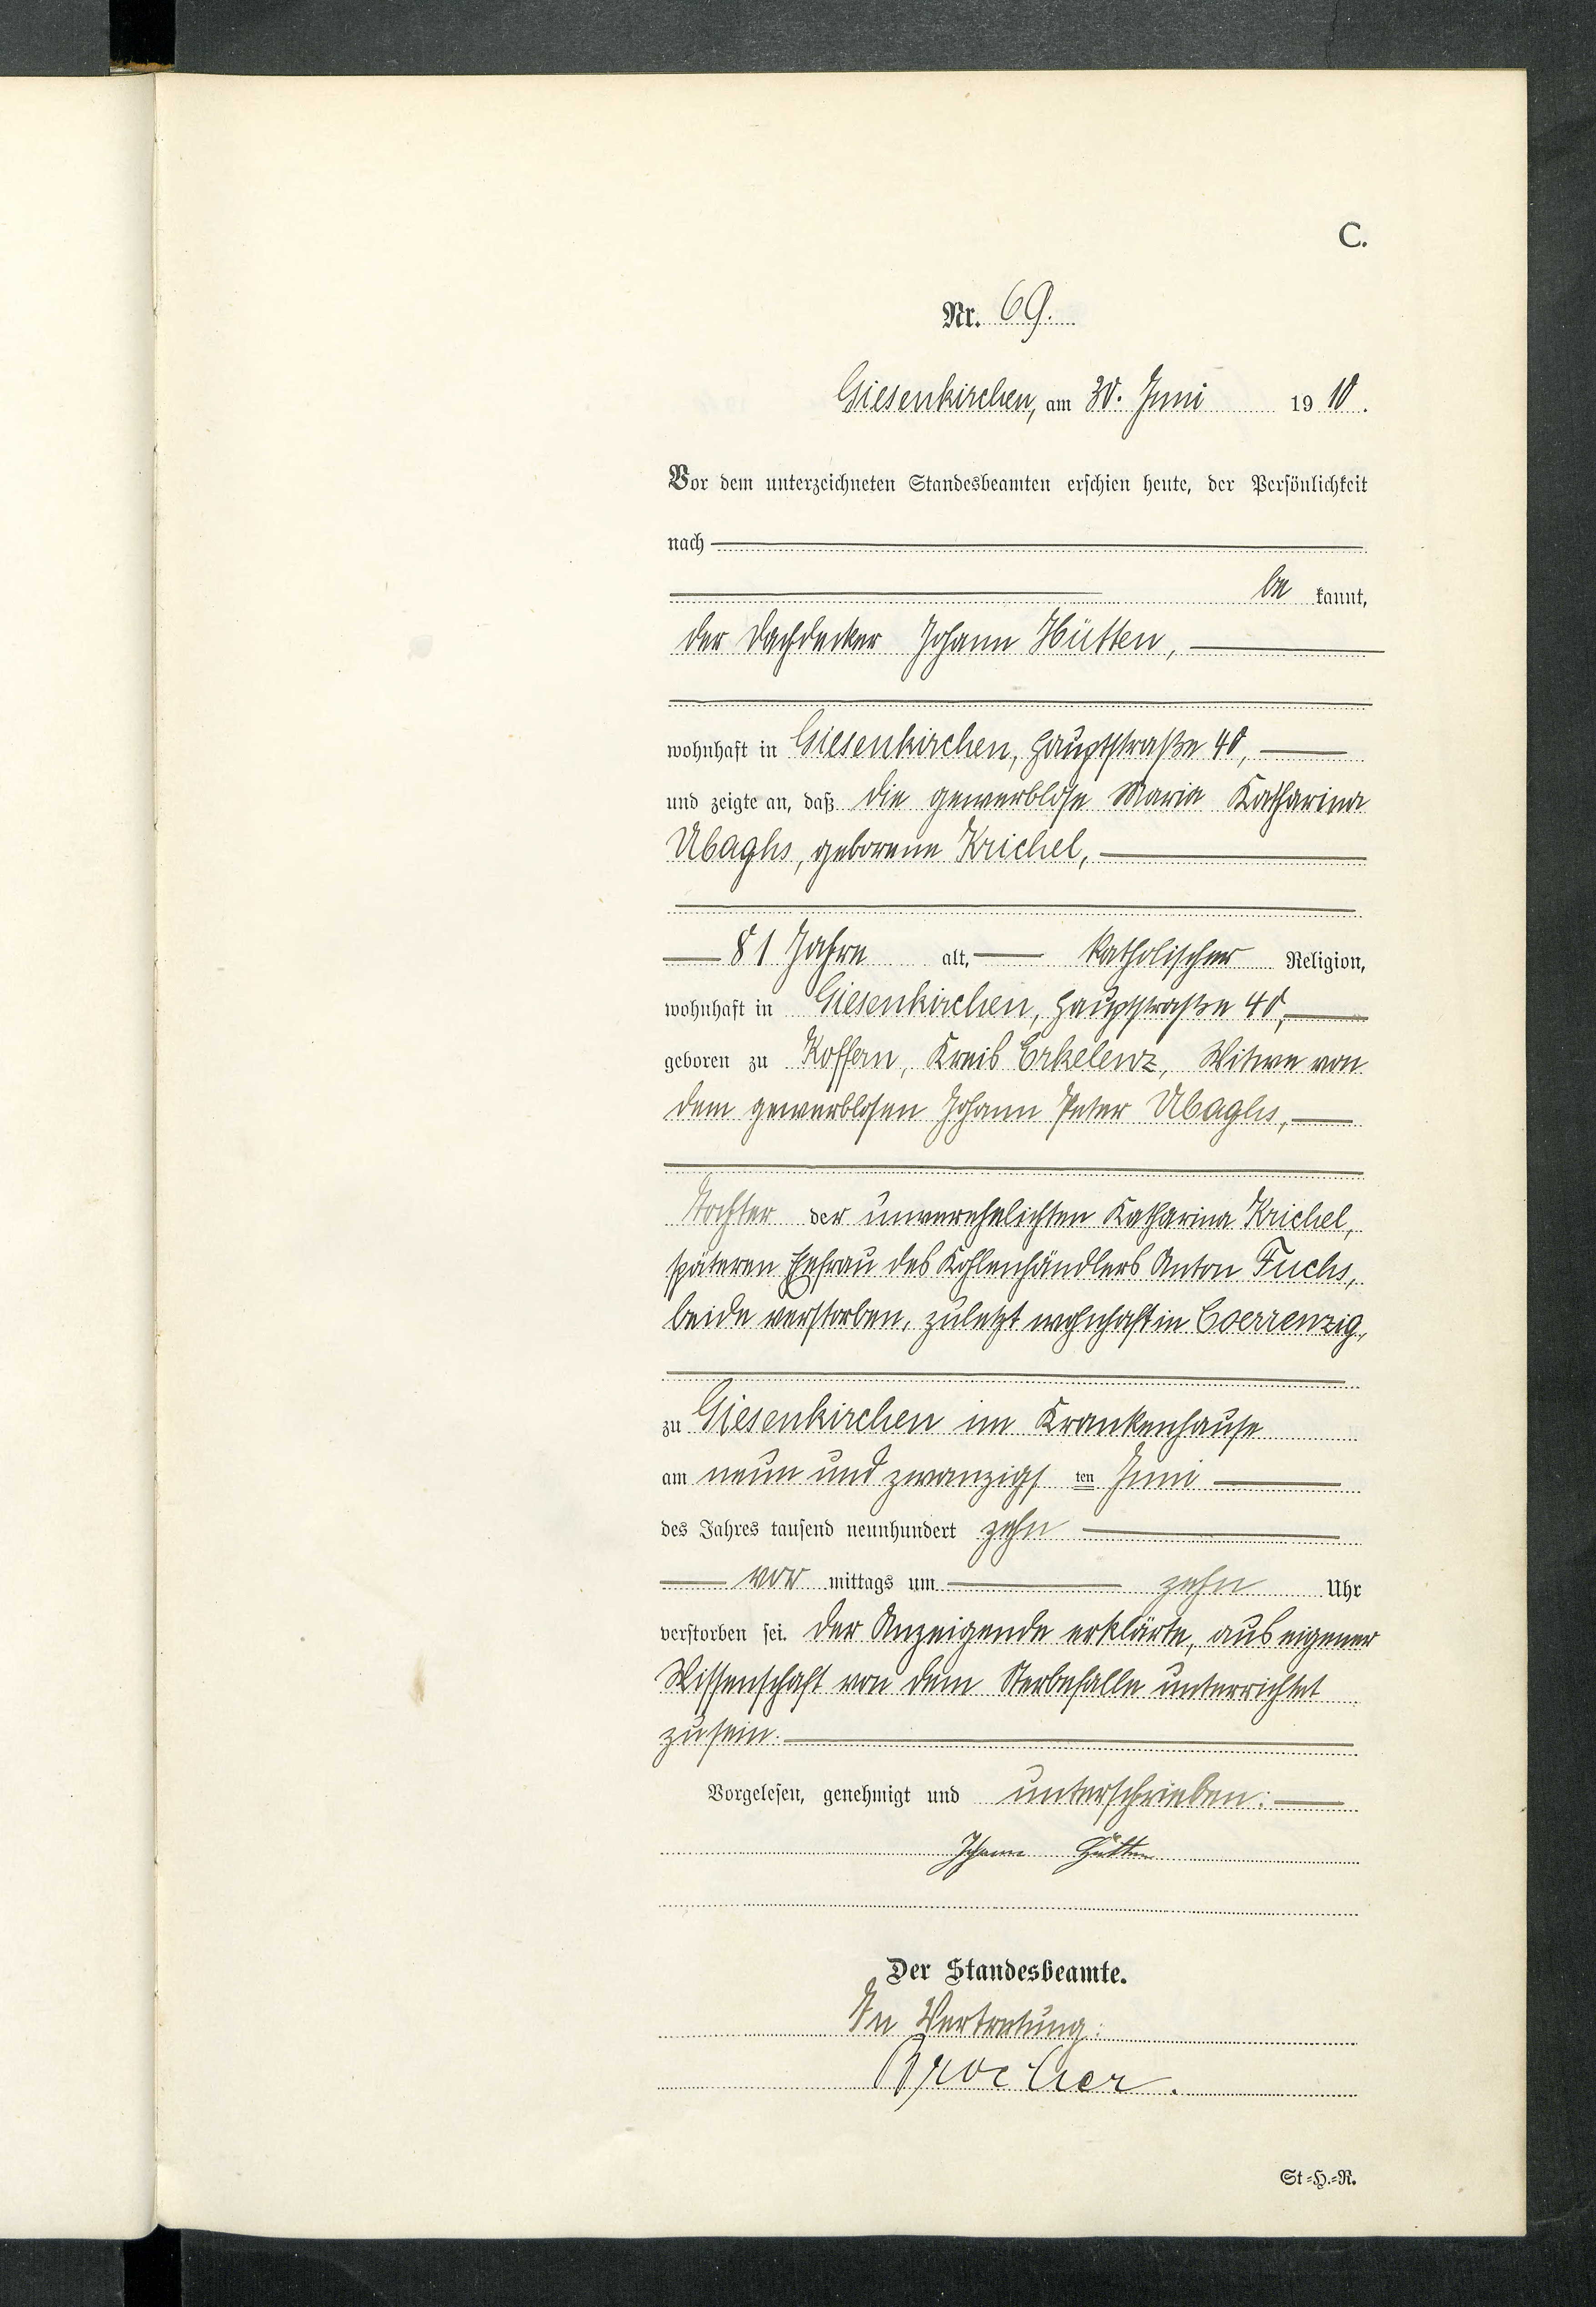 C.
Nr. 69.
Giesenkirchen, am 30. Juni 1910.
Vor dem unterzeichneten Standesbeamten erschien heute, der Persönlichkeit
nach
be kannt,
der Dachdecker Johann Hütten,
wohnhaft in Giesenkirchen, Hauptstraße 40,
und zeigte an, daß die gewerblose Maria Katharina
Ubaghs, geborene Krichel,
81 Jahre alt, katholischer Religion,
wohnhaft in Giesenkirchen, Hauptstraße 40,
geboren zu Koffern, Kreis Erkelenz, Witwe von
dem gewerblosen Johann Peter Ubaghs,
Tochter der unverehelichten Katharina Krichel,
späteren Ehefrau des Kohlenhändlers Anton Fuchs,
beide verstorben, zuletzt wohnhaft in Coerrenzig,
zu Giesenkirchen im Krankenhause
am neun und zwanzigs ten Juni
des Jahres tausend neunhundert zehn
vor mittags um zehn Uhr
verstorben sei. Der Anzeigende erklärte, aus eigener
Wissenschaft von dem Sterbefalle unterrichtet
zu sein.
Vorgelesen, genehmigt und unterschrieben:
Johann Hütten
Der Standesbeamte.
In Vertretung:
St=H.=R.